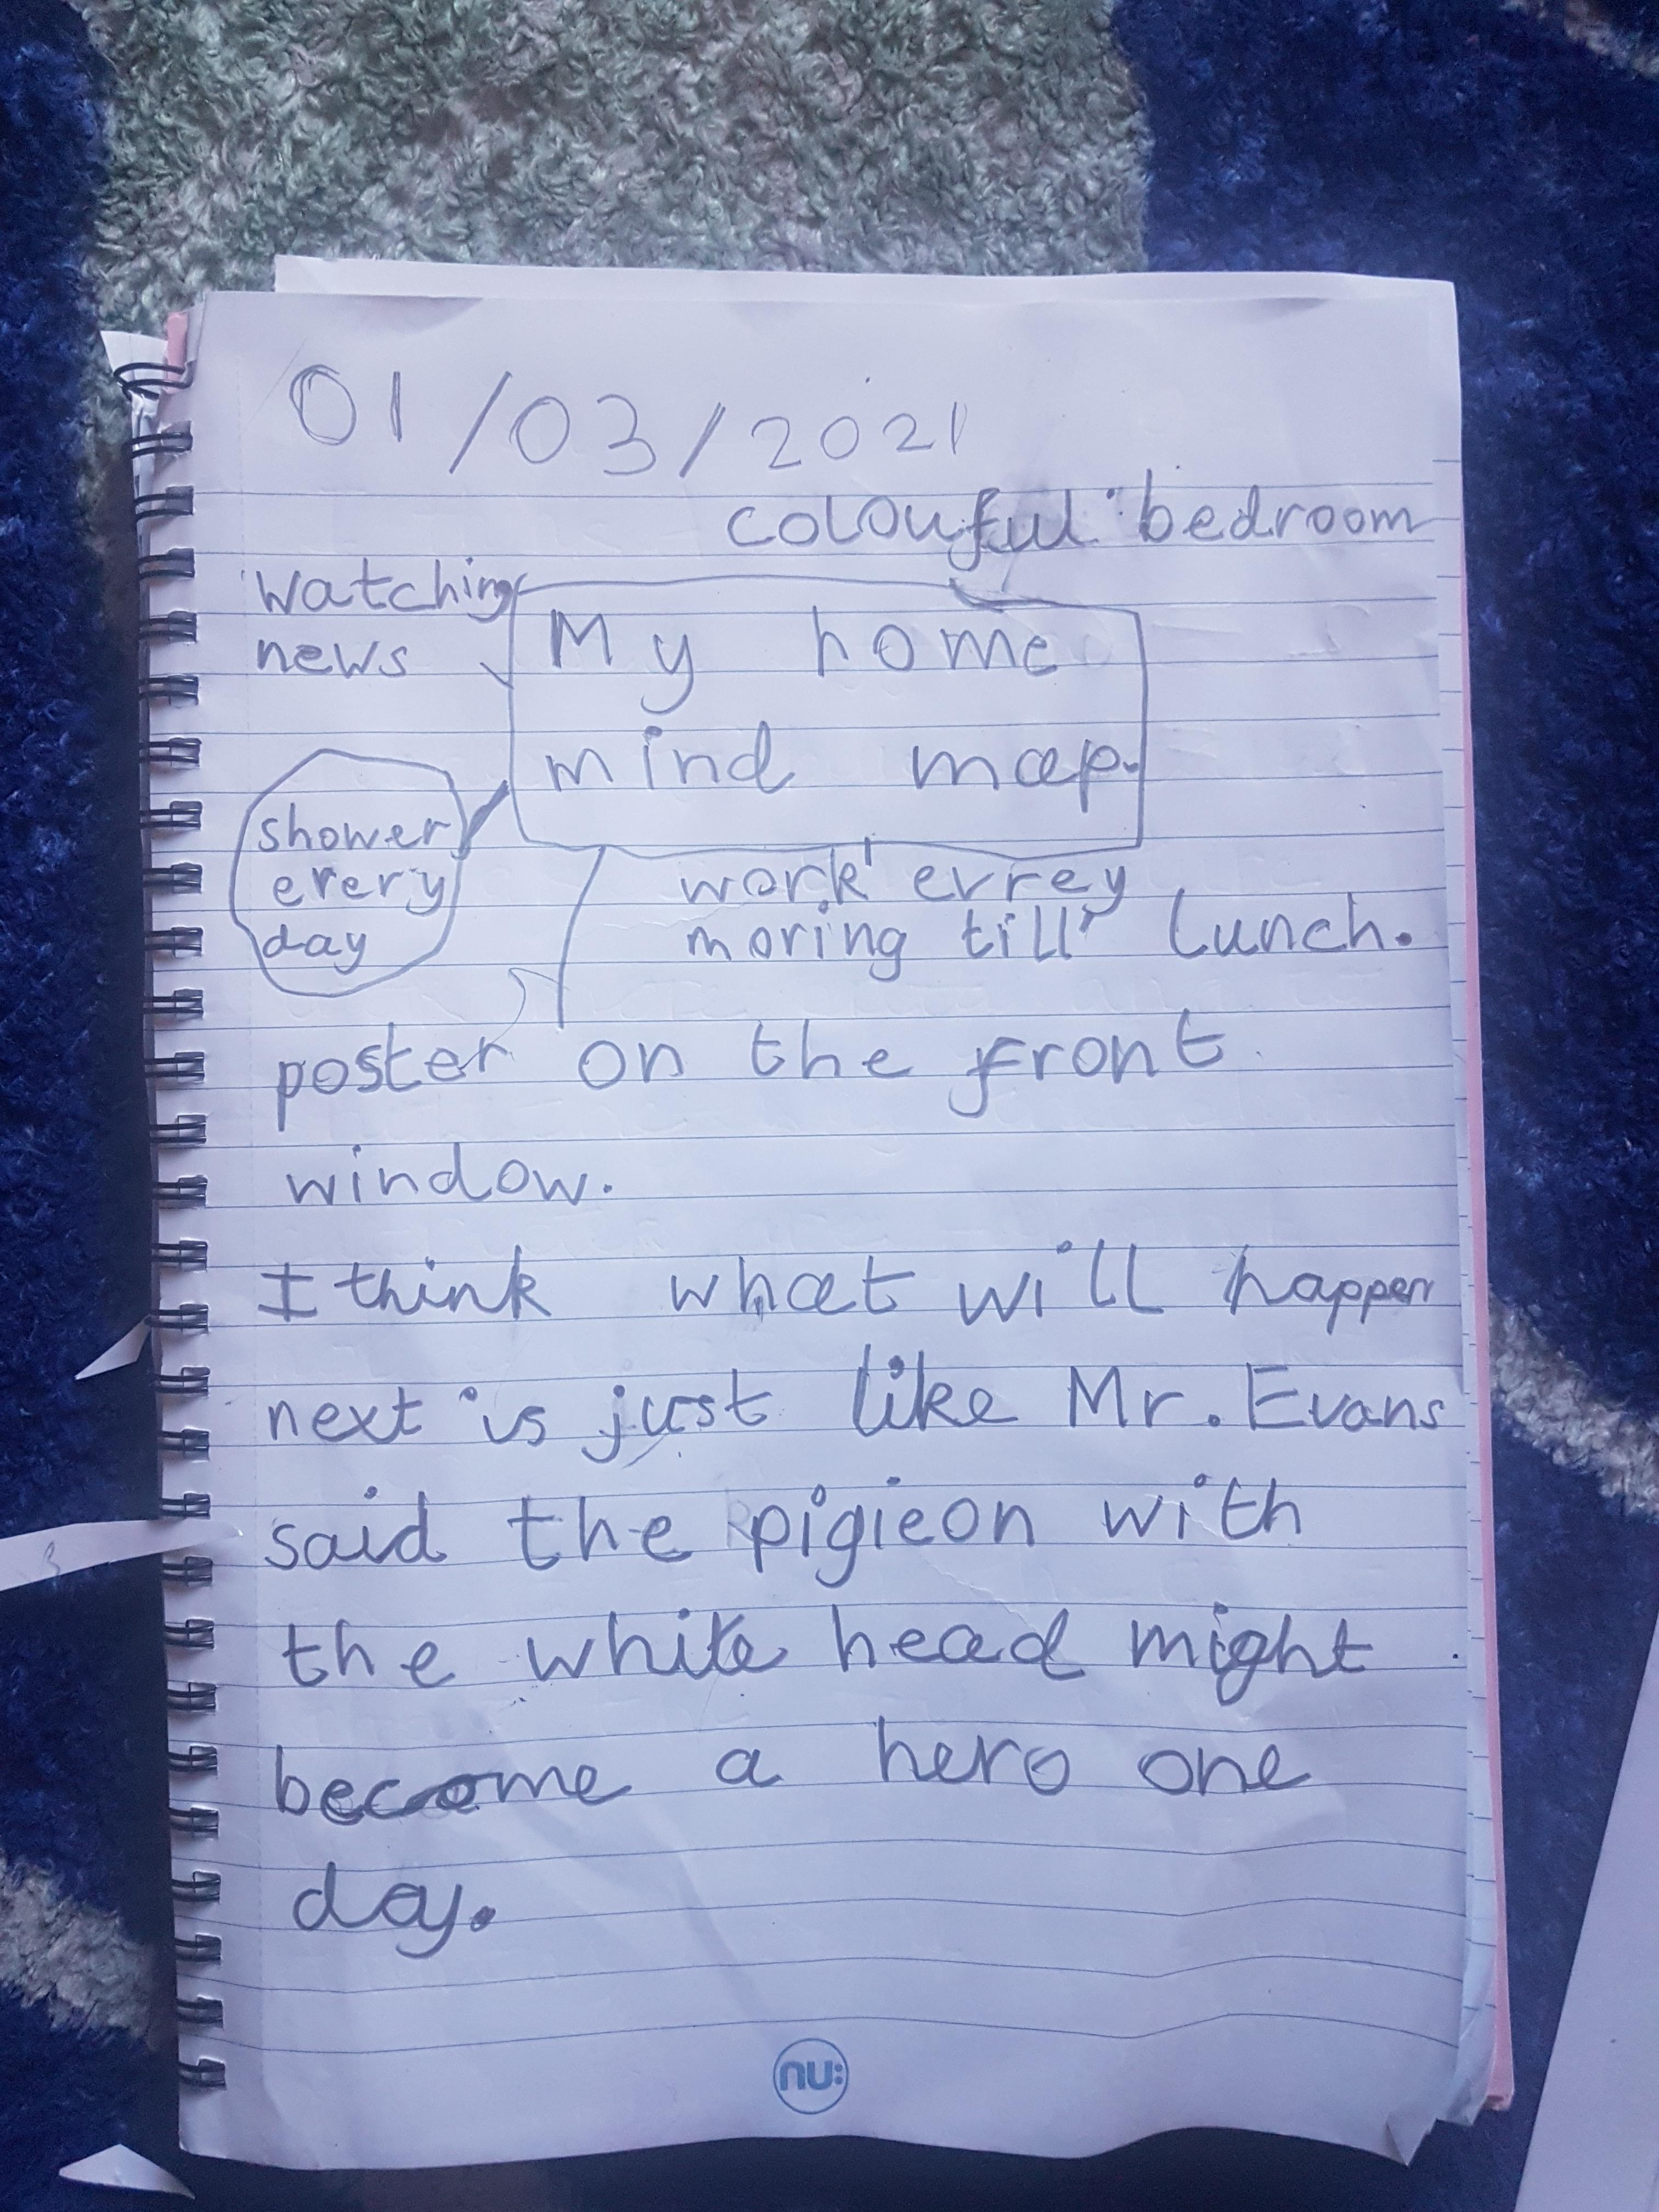 01/03/2021
colouful bedroom
watching
news
My home
mind map.
shower
every
day
work evrey
moring till lunch.
poster on the front
window.
I think what will happen
next is just like Mr. Evans
said the pigieon with
the white head might
become a hero one
day.
nu: